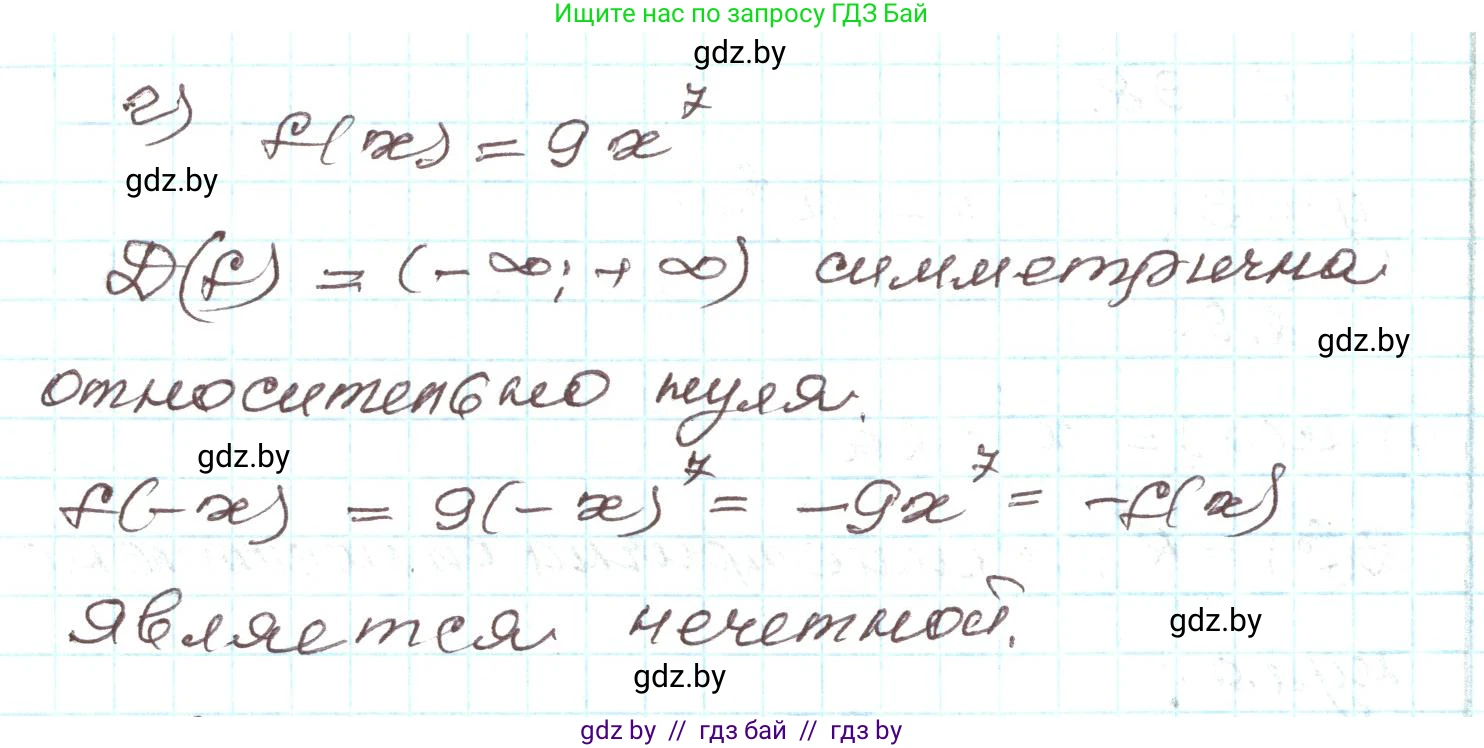 Ищите нас по запросу ГДЗ Бай
gdz.by
г) f(x) = 9x⁷
gdz.by
D(f) = (-∞; +∞) симметрична
gdz.by
относительно нуля.
gdz.by
f(-x) = 9(-x)⁷ = -9x⁷ = -f(x)
является нечетной.
gdz.by
gdz.by
gdz by // гдз бай // гдз by